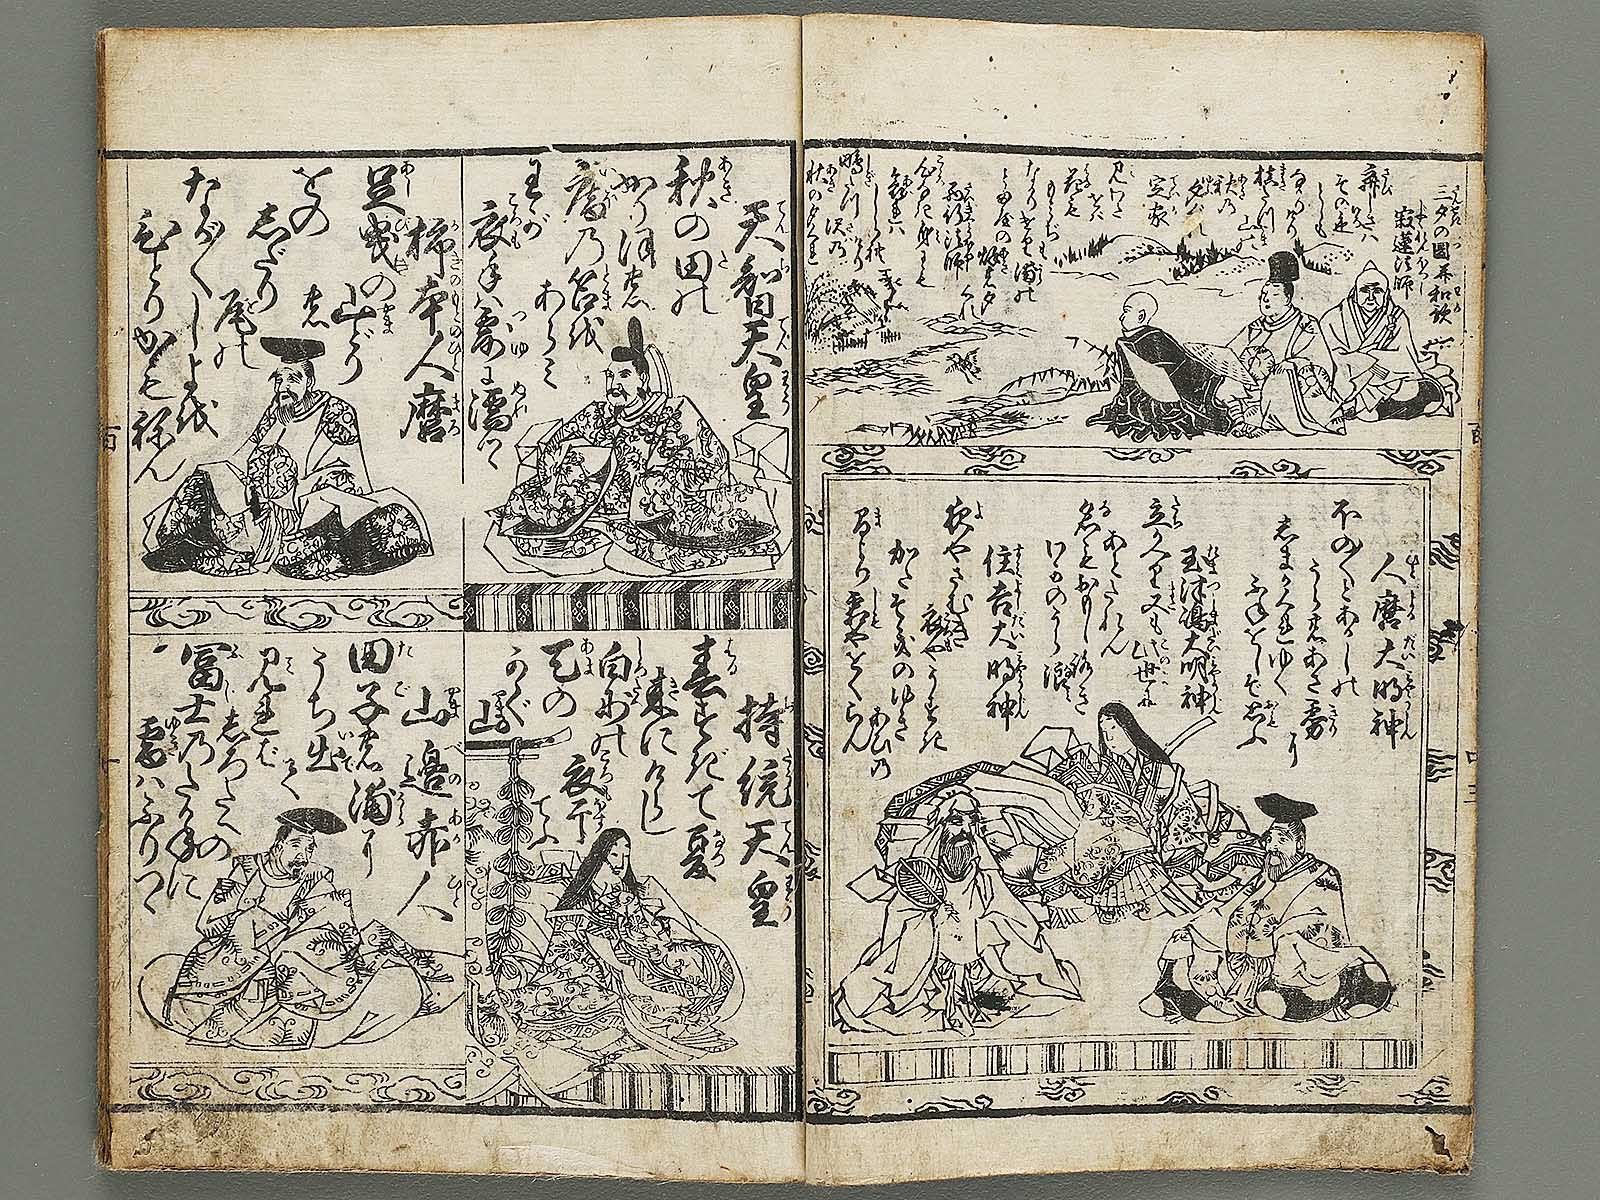 三夕の圖并和歌
寂蓮法師
寂しさは
その色
としも
なかりけり
槇たつ
山の
秋の
夕ぐれ
定家
見わたせば
花も
もみぢも
なかりけり
浦の
とま屋の
秋の夕ぐれ
西行法師
心なき身にも
あはれは
しられけり
鴫たつ沢の
秋の夕ぐれ
人麿大明神
ほの〳〵とあかしの
うらのあさ霧に
しまがくれゆく
ふねをしぞおもふ
玉津嶋大明神
立かへり又も此世に
あとたれん
名もおもしろき
わかのうら浪
住吉大明神
夜やさむき
衣やうすき
かたそぎのゆきあひの
まより霜やをくらん
天智天皇
秋の田の
かりほの
庵の苫を
あらみ
わが
衣手は露に濡つゝ
持統天皇
春すぎて夏
来にけらし
白妙の
衣ほす
てふ
天の
かぐ
山
柿本人麿
足曳の山どり
の
をの
しだり
尾の
なが〳〵しよを
ひとりかもねん
山邉赤人
田子の浦に
うち出
て
見れば
しろたへの
冨士のたかねに
雪はふりつゝ